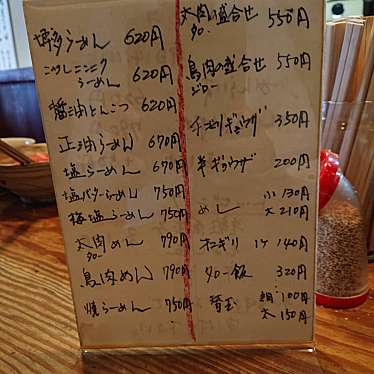 博多らーめん 620円
こってしニンニク
らーめん 620円
醤油とんこつ 620円
正油らーめん 670円
塩らーめん 670円
塩バターらーめん 750円
梅塩らーめん 750円
太肉めん 790円
ター
鳥肉めん 790円
焼らーめん 750円
太肉の盛合せ 550円
ター
鳥肉の盛合せ 550円
ジロー
手造りギョウザ 350円
半ギョウザ 200円
めし 小 130円
大 210円
オニギリ 1ケ 140円
ターロー飯 320円
替玉 細 100円
太 150円